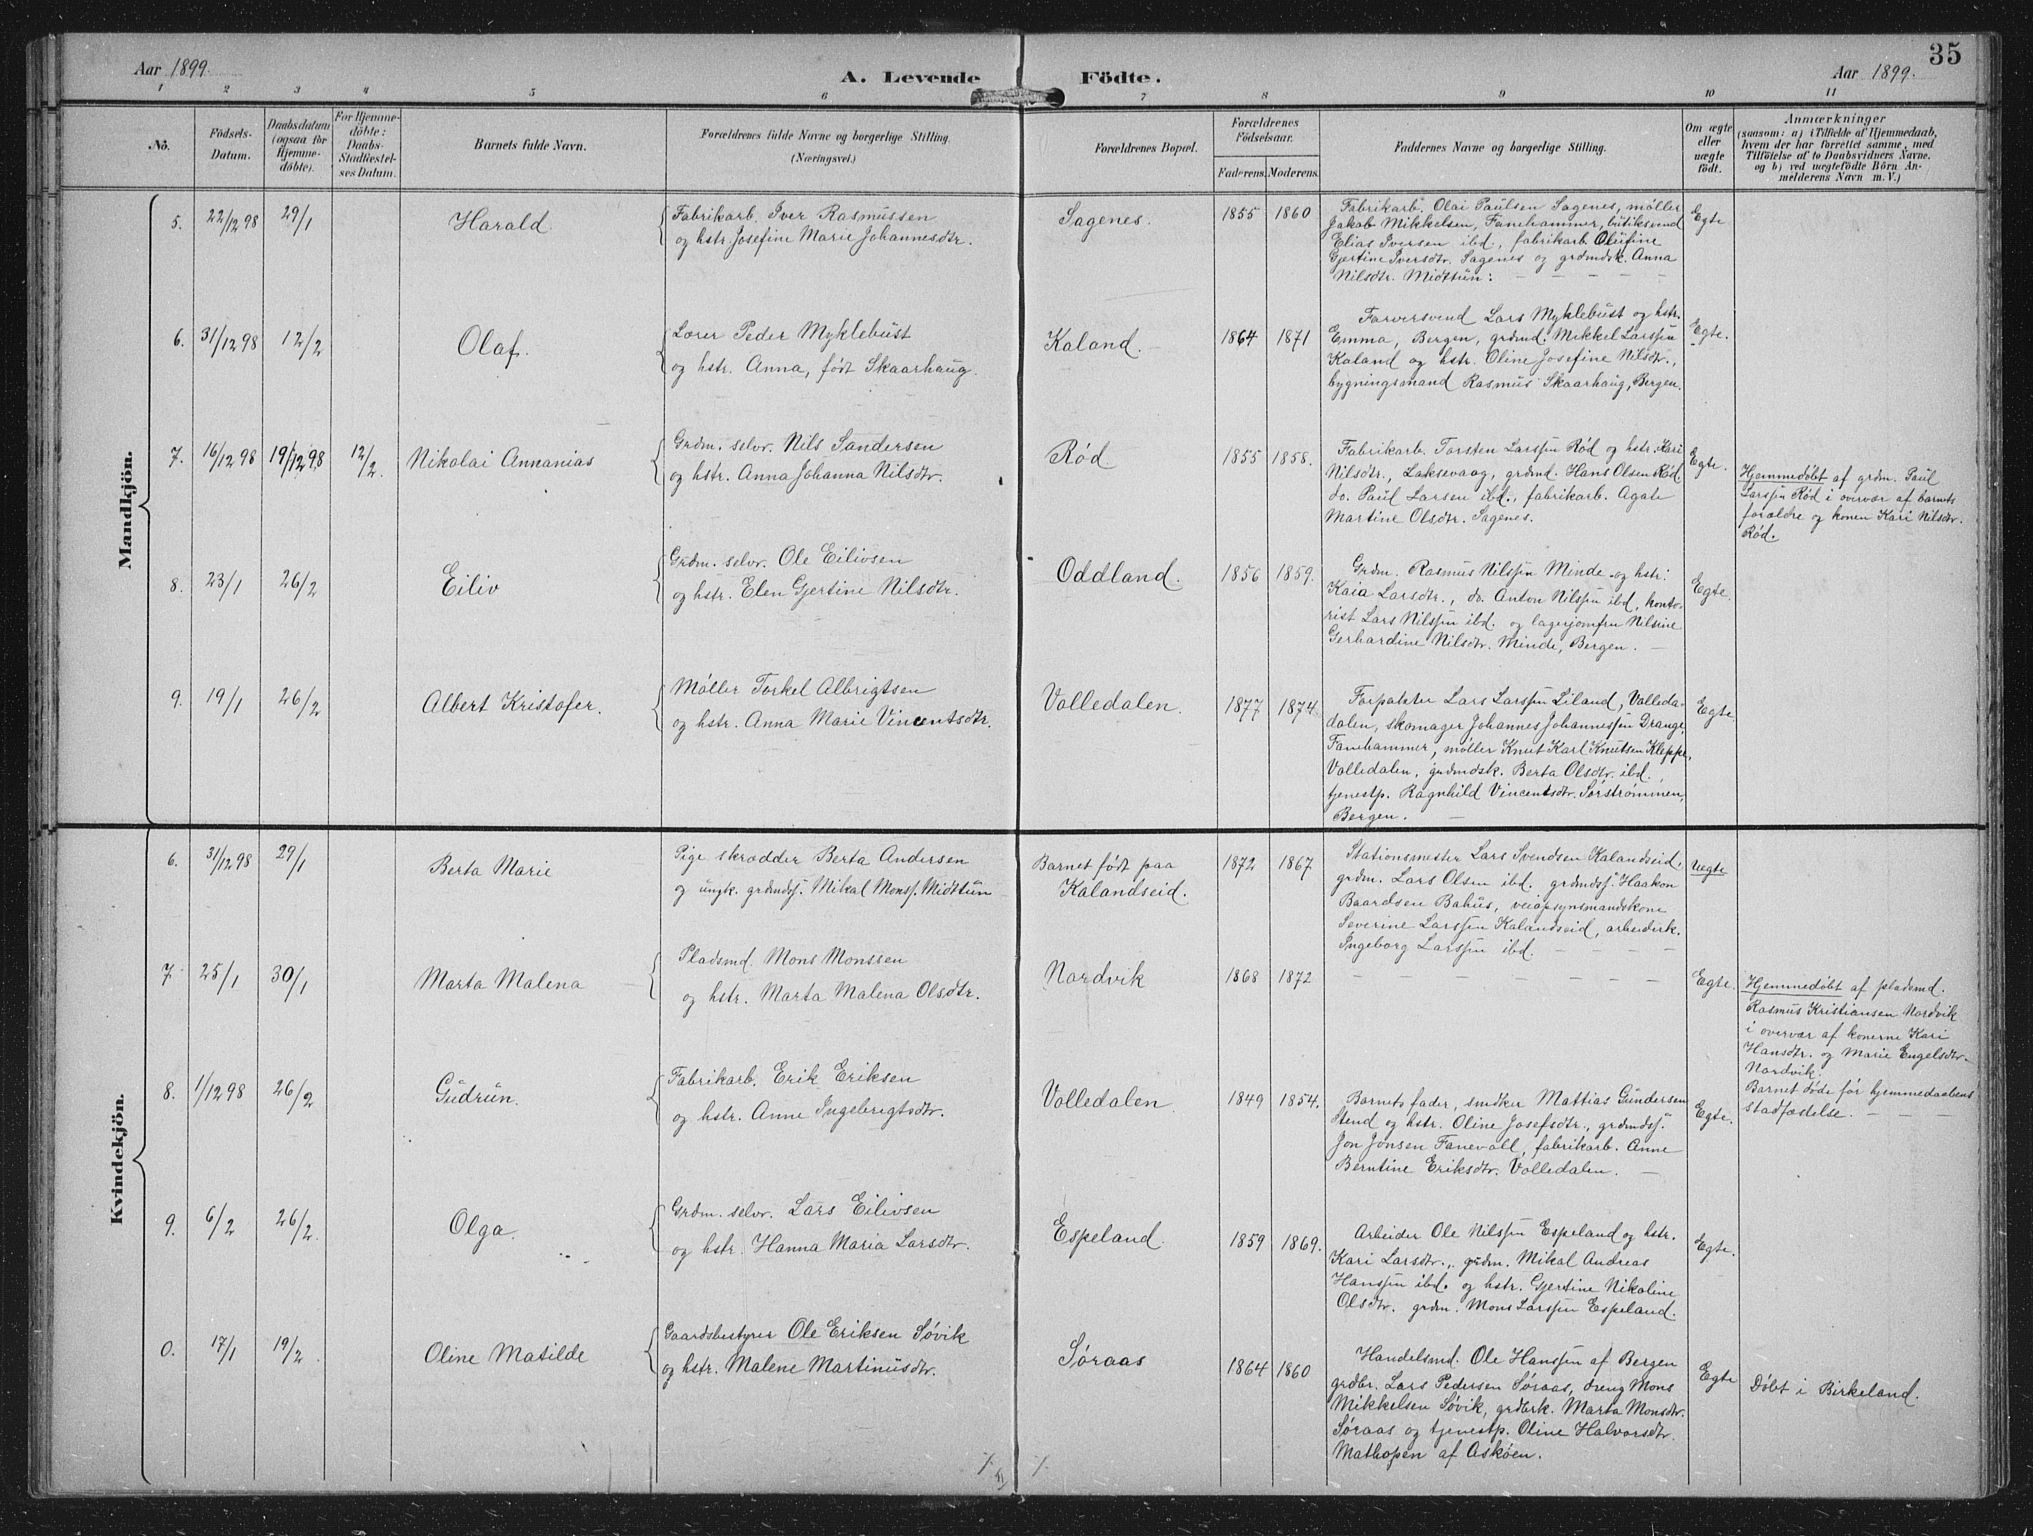 35
Aar 1899.
A. Levende Födte.
Aar 1899.
1 2 3 4 5 6 7 8 9 10 11
No.
Födsels-
Datum.
Daabsdatum
(ogsaa for
Hjemme-
döbte).
For Hjemme-
döbte:
Daabs-
Stadfæstel-
ses Datum.
Barnets fulde Navn.
Forældrenes fulde Navne og borgerlige Stilling.
(Næringsvei.)
Forældrenes Bopæl.
Forældrenes
Födselsaar.
Faderens. Moderens.
Faddernes Navne og borgerlige Stilling.
Om ægte
eller
uægte
födt.
Anmærkninger
(saasom: a) i Tilfælde af Hjemmedaab,
hvem der har forrettet samme, med
Tilföielse af to Daabsvidners Navne,
og b) ved uægtefödte Börn An-
melderens Navn m. V.)
Mandkjön.
5. 22/12 98 29/1 Harald
Fabrikarb. Iver Rasmussen
og hstr. Josefine Marie Johannesdtr.
Sagenes. 1855 1860
Fabrikarb. Olai Paulsen Sagenes, møller
Jakob Mikkelsen, Fanehammer, butiksvend
Elias Iversen ibd., fabrikarb. Olufine
Gjertine Iversdtr. Sagenes og grdmdsk. Anna
Nilsdtr. Midttun: — — — — —
Egte
6. 31/12 98 12/2 Olaf.
Lærer Peder Myklebust
og hstr. Anna, født Skaarhaug.
Kaland. 1864 1871
Farversvend Lars Myklebust og hstr.
Emma, Bergen, grdmd. Mikkel Larssøn
Kaland og hstr. Oline Josefine Nilsdtr.,
bygningsmand Rasmus Skaarhaug, Bergen.
Egte.
7. 16/12 98 19/12 98 12/2. Nikolai Annanias
Grdm. selvr. Nils Sandersen
og hstr. Anna Johanna Nilsdtr.
Rød. 1855 1858.
Fabrikarb. Torsten Larssøn Rød og hstr. Kari
Nilsdtr., Laksevaag, grdmd. Hans Olsen Rød,
do. Paul Larsen ibd., fabrikarb. Agate
Martine Olsdtr. Sagenes.
Egte.
Hjemmedøbt af grdm. Paul
Larssøn Rød i overvær af barnets
forældre og konen Kari Nilsdtr.
Rød.
8. 23/1 26/2 Eiliv
Grdm. selvr. Ole Eilivsen
og hstr. Elen Gjertine Nilsdtr.
Oddland. 1856 1859.
Grdm. Rasmus Nilssøn Minde og hstr.
Kaia Larsdtr., do. Anton Nilssøn ibd, konto-
rist Lars Nilssøn ibd. og lagerjomfru Nilsine
Gerhardine Nilsdtr. Minde, Bergen. —
Egte.
9. 19/1 26/2 Albert Kristofer.
Møller Torkel Albrigtsen
og hstr. Anna Marie Vincentsdtr.
Volledalen. 1877 1874.
Forpakter Lars Larssøn Liland, Volleda-
dalen, skomager Johannes Johannessøn Drange,
Fanehammer, møller Knut Karl Knutsen Kleppe,
Volledalen, grdmdsk. Berta Olsdtr. ibd.,
tjenestp. Ragnhild Vincentsdtr. Sørstrømmen,
Bergen. —
Egte.
Kvindekjön.
6. 31/12 98 29/1 Berta Marie
Pige skrædder Berta Andersen
og ungk. grdmdss. Mikal Monss. Midttun
Barnet født paa
Kalandseid.
1872 1867
Stationsmester Lars Svendsen Kalandseid,
grdm. Lars Olsen ibd. grdmdss. Haakon
Baardsen Bahus, veiopsynsmandskone
Severine Larssøn Kalandseid, arbeiderk.
Ingeborg Larssøn ibd. — — — —
Uegte
7. 25/1 30/1 Marta Malena
Pladsmd. Mons Monssen
og hstr. Marta Malena Olsdtr.
Nordvik 1868 1872
— — — — — — —
Egte.
Hjemmedøbt af pladsmd.
Rasmus Kristiansen Nordvik
i overvær af konerne Kari
Hansdtr. og Marie Engelsdtr.
Nordvik.
Barnet døde før hjemmedaabens
stadfæstelse. — — —
8. 1/12 98 26/2 Gudrun.
Fabrikarb. Erik Eriksen
og hstr. Anne Ingebrigtsdtr.
Volledalen. 1849 1854.
Barnets fader, snidker Mattias Gundersen
Stend og hstr. Oline Josefsdtr., grdmdss.
Jon Jonsen Fanevoll, fabrikarb. Anne
Berntine Eriksdtr. Volledalen. —
Egte.
9. 6/2 26/2. Olga.
Grdm. selvr. Lars Eilivsen
og hstr. Hanna Maria Larsdtr.
Espeland. 1859 1869.
Arbeider Ole Nilssøn Espeland og hstr.
Kari Larsdtr., grdm. Mikal Andreas
Hanssøn ibd. og hstr. Gjertine Nikoline
Olsdtr. grdm. Mons Larssøn Espeland.
Egte.
0. 17/1 19/2. Oline Matilde
Gaardsbestyrer Ole Eriksen Søvik
og hstr. Malene Martinusdtr.
Søraas 1864 1860
Handelsmd. Ole Hanssøn af Bergen
grdbr. Lars Pedersen Søraas, dreng Mons
Mikkelsen Søvik, grdbrk. Marta Monsdtr.
Søraas og tjenestp. Oline Halvorsdtr.
Mathopen af Askøen.
Egte
Døbt i Birkeland.